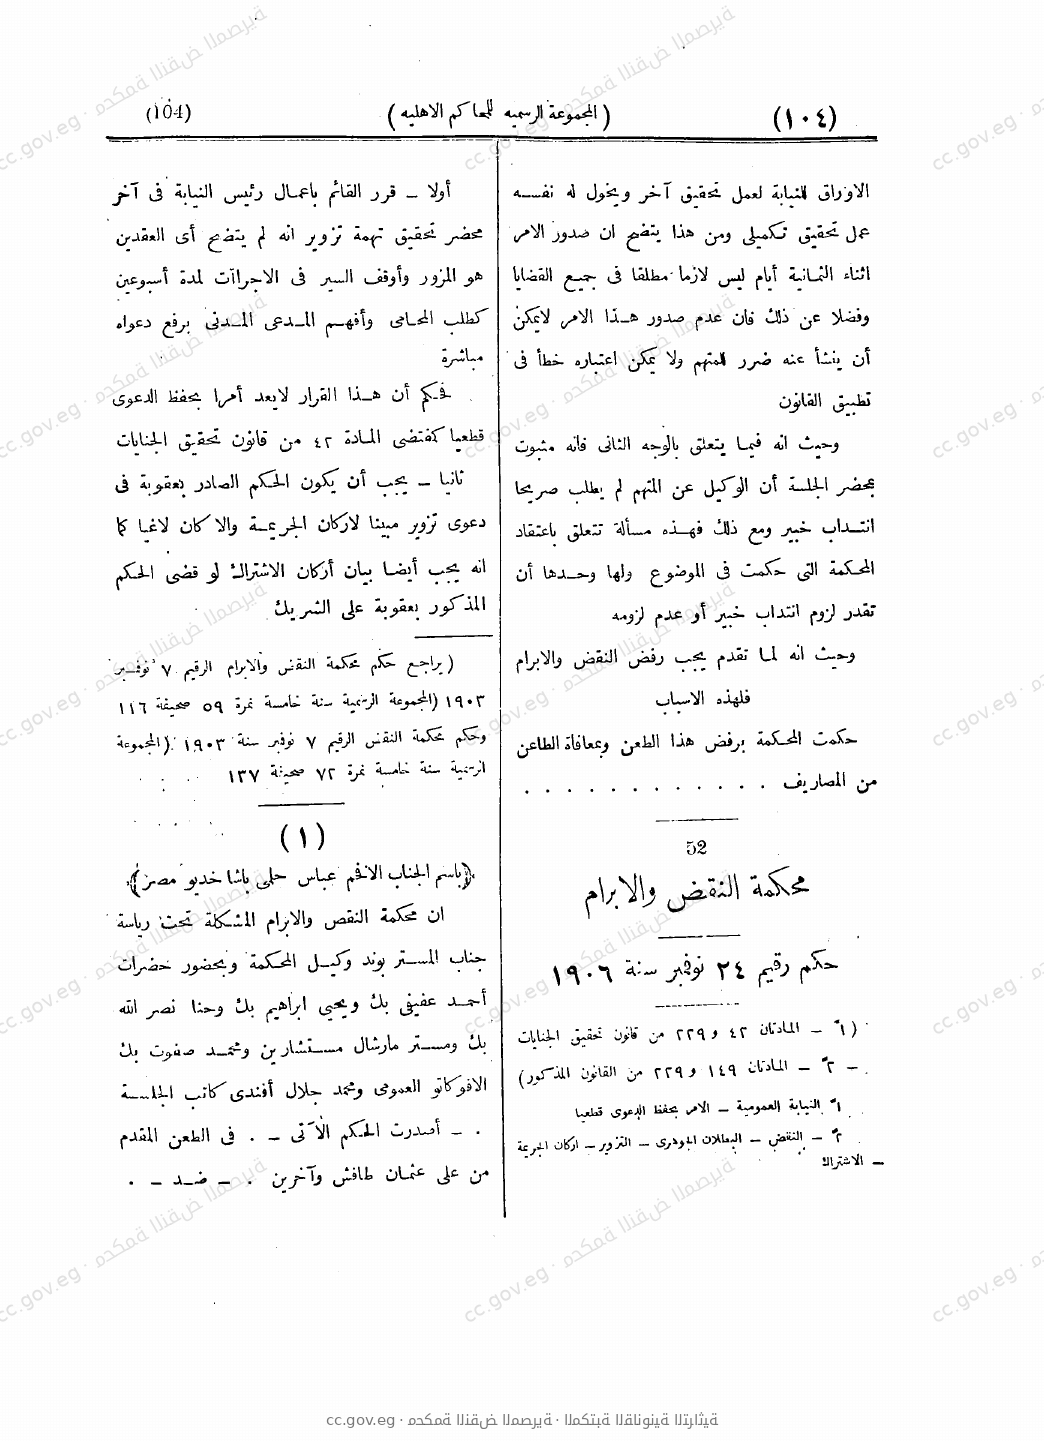 (١٠٤)
( المجموعة الرسميه للمحاكم الاهليه )
(104)
الاوراق للنيابة لعمل تحقيق آخر ويخول له نفسه
عمل تحقيق تكميلى ومن هذا يتضح ان صدور الامر
اثناء الثمانية أيام ليس لازما مطلقا فى جميع القضايا
وفضلا عن ذلك فان عدم صدور هذا الامر لايمكن
أن ينشأ عنه ضرر للمتهم ولا يمكن اعتباره خطأ فى
تطبيق القانون
وحيث انه فيما يتعلق بالوجه الثانى فانه مثبوت
بمحضر الجلسة أن الوكيل عن المتهم لم يطلب صريحا
انتداب خبير ومع ذلك فهذه مسألة تتعلق باعتقاد
المحكمة التى حكمت فى الموضوع ولها وحدها أن
تقدر لزوم انتداب خبير أو عدم لزومه
وحيث انه لما تقدم يجب رفض النقض والابرام
فلهذه الاسباب
حكمت المحكمة برفض هذا الطعن وبمعافاة الطاعن
من المصاريف . . . . . . . . . . . .
52
محكمة النقض والابرام
حكم رقيم ٢٤ نوفمبر سنة ١٩٠٦
(١ً – المادتان ٤٢ و ٢٢٩ من قانون تحقيق الجنايات
– ٢ً – المادتان ١٤٩ و ٢٢٩ من القانون المذكور)
١ً النيابة العمومية – الامر بحفظ الدعوى قطعيا
٢ً – النقض – البطلان الجوهرى – التزوير – اركان الجريمة
– الاشتراك
أولا – قرر القائم باعمال رئيس النيابة فى آخر
محضر تحقيق تهمة تزوير انه لم يتضح أى العقدين
هو المزور وأوقف السير فى الاجراآت لمدة أسبوعين
كطلب المحامى وأفهم المدعى المدنى برفع دعواه
مباشرة
فحكم أن هذا القرار لايعد أمرا بحفظ الدعوى
قطعيا كمقتضى المادة ٤٢ من قانون تحقيق الجنايات
ثانيا – يجب أن يكون الحكم الصادر بعقوبة فى
دعوى تزوير مبينا لاركان الجريمة والا كان لاغيا كما
انه يجب أيضا بيان أركان الاشتراك لو قضى الحكم
المذكور بعقوبة على الشريك
( يراجع حكم محكمة النقض والابرام الرقيم ٧ نوفمبر
١٩٠٣ (المجموعة الرسمية سنة خامسة نمرة ٥٩ صحيفة ١١٦
وحكم محكمة النقض الرقيم ٧ نوفمبر سنة ١٩٠٣ (المجموعة
الرسمية سنة خامسة نمرة ٧٢ صحيفة ١٣٧
(١)
﴿باسم الجناب الافخم عباس حلمى باشا خديو مصر﴾
ان محكمة النقض والابرام المشكلة تحت رياسة
جناب المستر بوند وكيل المحكمة وبحضور حضرات
أحمد عفيفى بك ويحيى ابراهيم بك وحنا نصر الله
بك ومستر مارشال مستشارين ومحمد صفوت بك
الافوكاتو العمومى ومحمد جلال أفندى كاتب الجلسة
. – أصدرت الحكم الآتى – . فى الطعن المقدم
من على عثمان طافش وآخرين . – ضد – .
cc.gov.eg · محكمة النقض المصرية · المكتبة القانونية التراثية